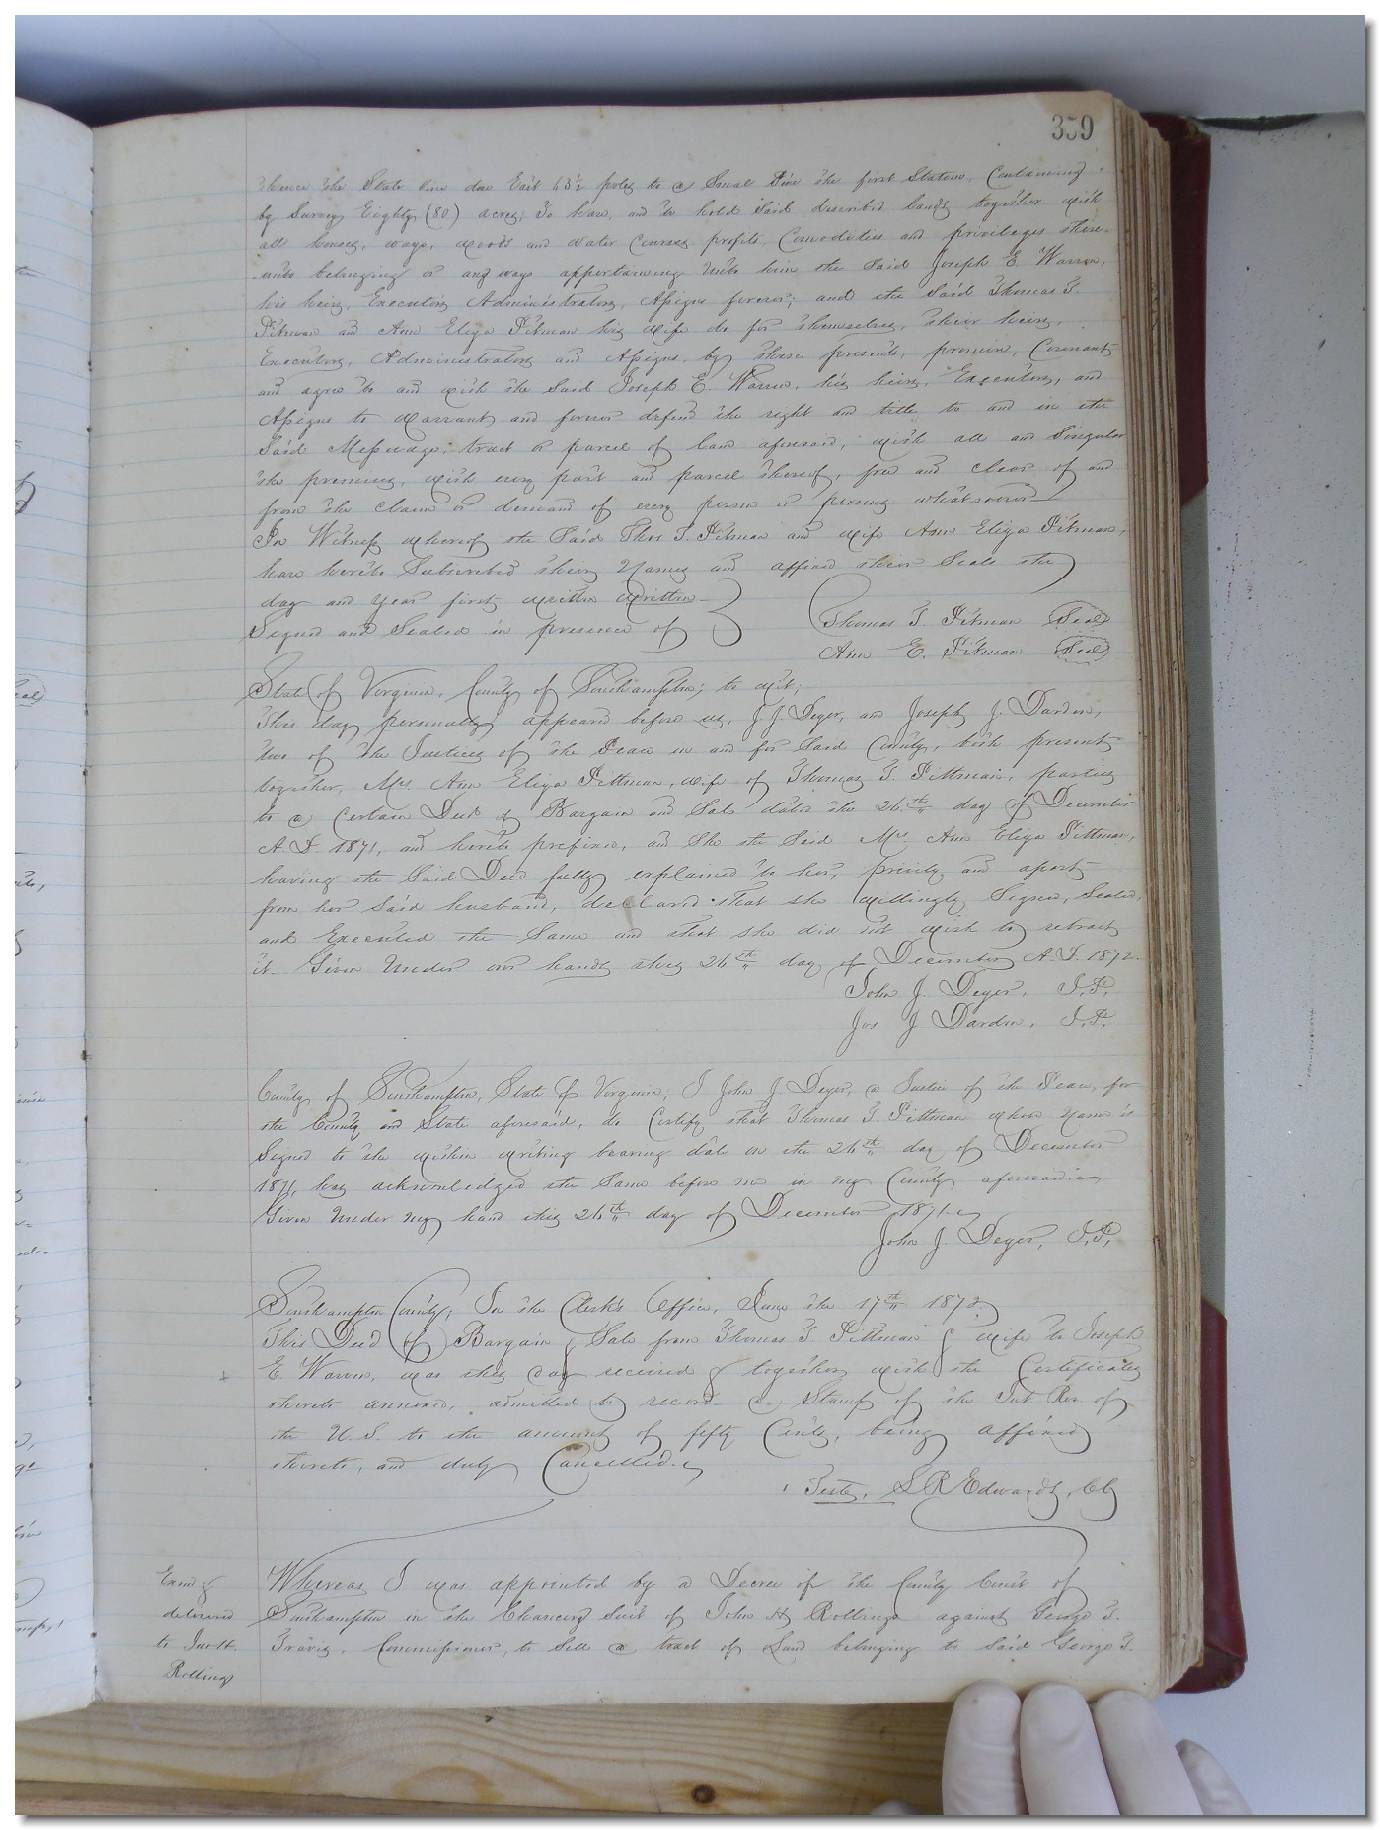 359
thence the State line due East 63½ poles to a Small Pine the first Station. Containing
by Survey Eighty (80) acres; To have, and to hold Said described lands together with
all houses, ways, woods and water Courses, profits, Comodities and priviliges there-
-unto belonging or any ways appertaining Unto him the Said Joseph E. Warren,
his heirs, Executors, Administrators, Assigns forever; and the Said Thomas T.
Pitman and Ann Eliza Pitman his wife do for themselves, their heirs,
Executors, Administrators and Assigns, by these presents, promise, Covenant
and agree to and with the Said Joseph E. Warren, his heirs, Executors, and
Assigns to warrant and forever defend the right and title to and in the
Said Messuage, tract or parcel of land aforesaid, with all and Singular
the premises, with every part and parcel thereof, free and clear of and
from the claim or demand of every person or persons whatsoever
In Witness whereof the Said Thos T. Pitman and wife Ann Eliza Pitman,
have hereto Subscribed their Names and affixed their Seals the
day and year first written written
Signed and Sealed in presence of Thomas T. Pitman Seal
Ann E. Pitman Seal
State of Virginia, County of Southampton; to wit;
This day personally appeared before us, J. J. Deyer, and Joseph J. Darden,
two of the Justices of the Peace in and for Said County, both present
together, Mrs. Ann Eliza Pittman, wife of Thomas T. Pittman, parties
to a Certain Deed of Bargain and Sale dated the 26th day of December
A.D. 1871, and hereto prefixed, and She the Said Mrs Ann Eliza Pittman,
having the Said Deed fully explained to her, privily and apart
from her Said husband, declared that she willingly Signed, Sealed,
and Executed the Same and that She did not wish to retract
it. Given Under our hands this 26th day of December A.D. 1872.
John J. Deyer, J.P.
Jos J Darden, J.P.
County of Southampton, State of Virginia; I John J Deyer, a Justice of the Peace, for
the County and State aforesaid, do Certify that Thomas T. Pittman whose Name is
Signed to the within writing bearing date on the 26th day of December
1871, has acknowledged the Same before me in my County aforesaid
Given Under my hand this 26th day of December 1871.
John J. Deyer, J.P.
Southampton County; In the Clerk's Office, June the 17th 1872.
This Deed of Bargain & Sale from Thomas T. Pittman & wife to Joseph
E. Warren, was this day received & together with the Certificates
thereto annexed, admitted to record. a Stamp of the Int. Rev. of
the U.S. to the amount of fifty Cents, being affixed
thereto, and duly Cancelled.
Teste, L R Edwards, Clk
Whereas I was appointed by a Decree of the County Court of
Southampton in the Chancery Suit of John H Rollings against George T.
Travis, Commissioner, to Sell a tract of Land belonging to Said George T.
Examd &
delivered
to Jno H.
Rollings